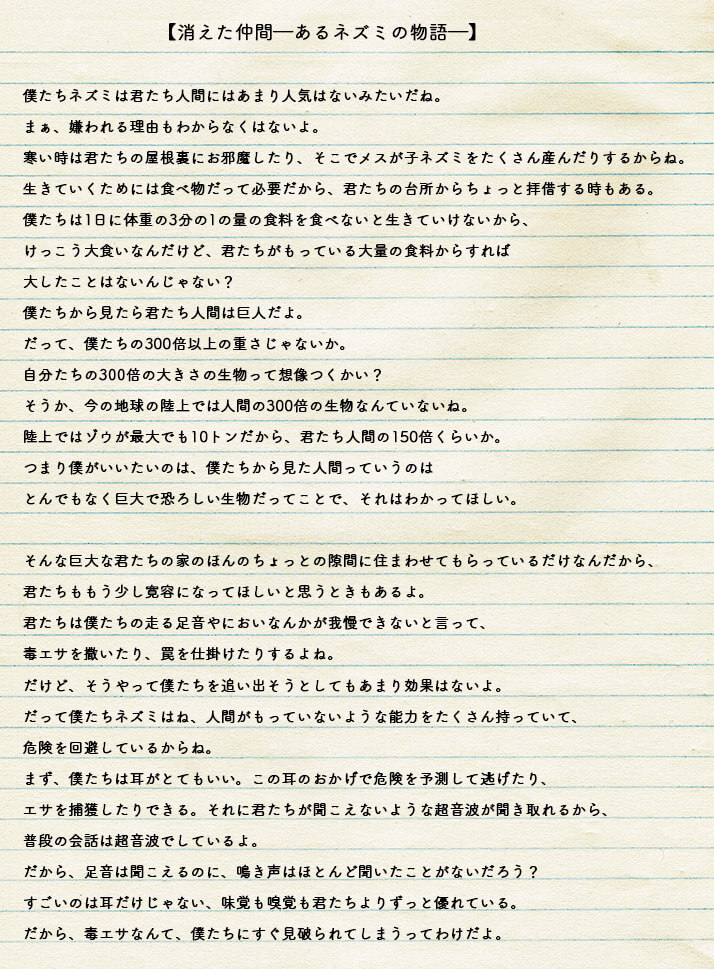 【消えた仲間―あるネズミの物語―】
僕たちネズミは君たち人間にはあまり人気はないみたいだね。
まぁ、嫌われる理由もわからなくはないよ。
寒い時は君たちの屋根裏にお邪魔したり、そこでメスが子ネズミをたくさん産んだりするからね。
生きていくためには食べ物だって必要だから、君たちの台所からちょっと拝借する時もある。
僕たちは1日に体重の3分の1の量の食料を食べないと生きていけないから、
けっこう大食いなんだけど、君たちがもっている大量の食料からすれば
大したことはないんじゃない？
僕たちから見たら君たち人間は巨人だよ。
だって、僕たちの300倍以上の重さじゃないか。
自分たちの300倍の大きさの生物って想像つくかい？
そうか、今の地球の陸上では人間の300倍の生物なんていないね。
陸上ではゾウが最大でも10トンだから、君たち人間の150倍くらいか。
つまり僕がいいたいのは、僕たちから見た人間っていうのは
とんでもなく巨大で恐ろしい生物だってことで、それはわかってほしい。
そんな巨大な君たちの家のほんのちょっとの隙間に住まわせてもらっているだけなんだから、
君たちももう少し寛容になってほしいと思うときもあるよ。
君たちは僕たちの走る足音やにおいなんかが我慢できないと言って、
毒エサを撒いたり、罠を仕掛けたりするよね。
だけど、そうやって僕たちを追い出そうとしてもあまり効果はないよ。
だって僕たちネズミはね、人間がもっていないような能力をたくさん持っていて、
危険を回避しているからね。
まず、僕たちは耳がとてもいい。この耳のおかげで危険を予測して逃げたり、
エサを捕獲したりできる。それに君たちが聞こえないような超音波が聞き取れるから、
普段の会話は超音波でしているよ。
だから、足音は聞こえるのに、鳴き声はほとんど聞いたことがないだろう？
すごいのは耳だけじゃない、味覚も嗅覚も君たちよりずっと優れている。
だから、毒エサなんて、僕たちにすぐ見破られてしまうってわけだよ。